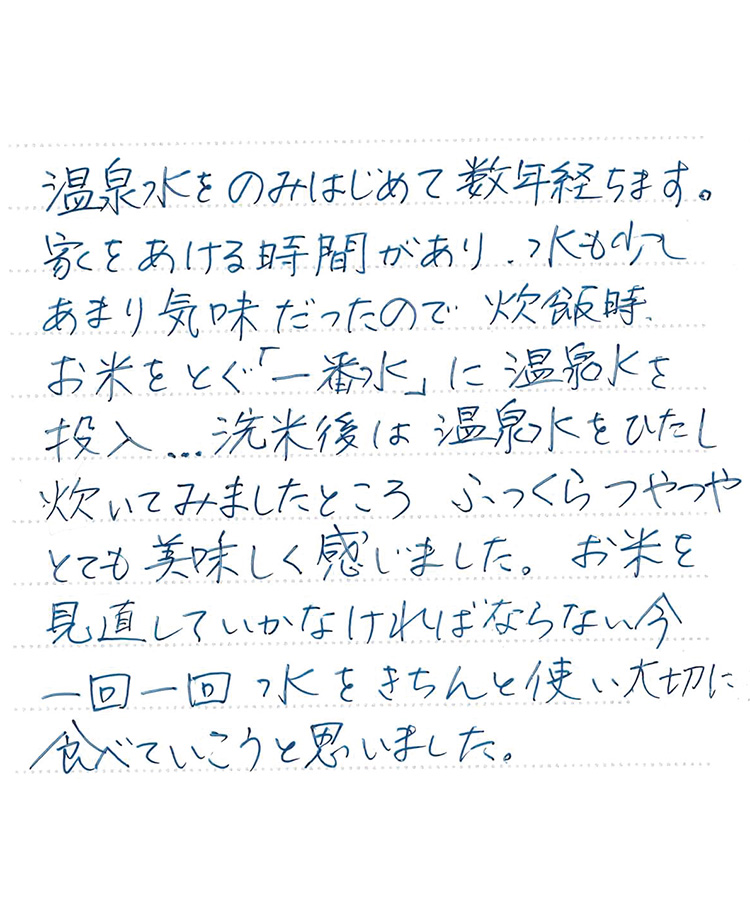 温泉水をのみはじめて数年経ちます。
家をあける時間があり、水も少し
あまり気味だったので 炊飯時、
お米をとぐ「一番水」に温泉水を
投入…洗米後は温泉水をひたし
炊いてみましたところ ふっくらつやつや
とても美味しく感じました。お米を
見直していかなければならない今
一回一回 水をきちんと使い大切に
食べていこうと思いました。